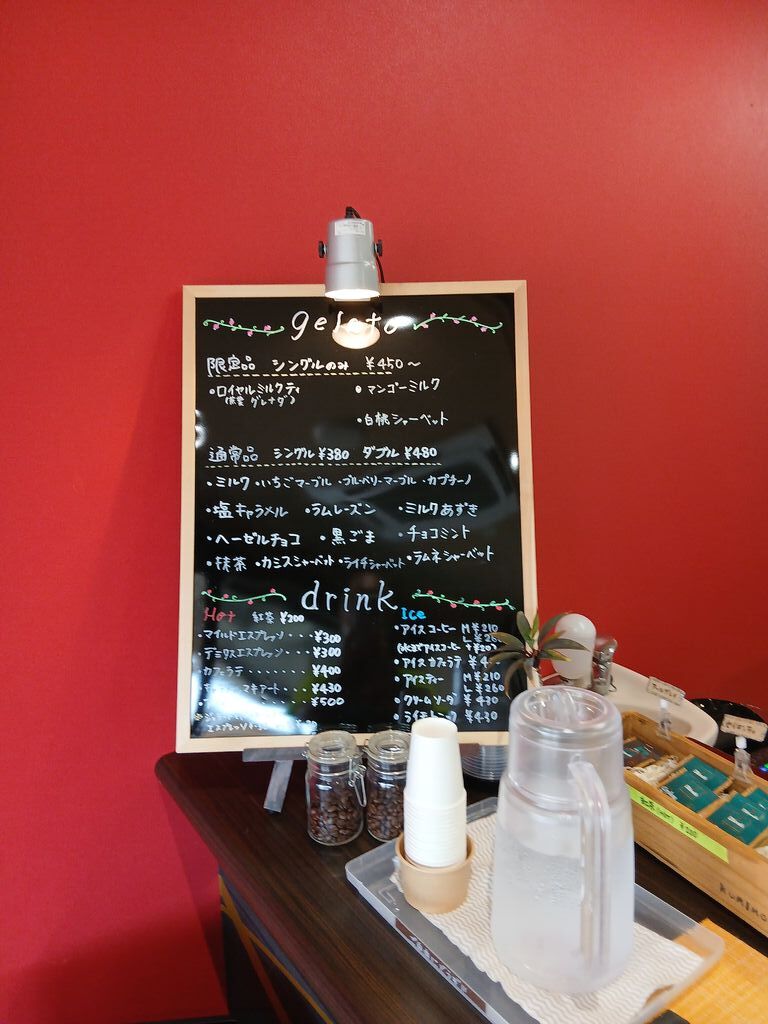 gelato
限定品 シングルのみ ¥450〜
・ロイヤルミルクティ ・マンゴーミルク
・白桃シャーベット
通常品 シングル ¥380 ダブル ¥480
・ミルク ・いちごマーブル ・ブルーベリーマーブル ・カプチーノ
・塩キャラメル ・ラムレーズン ・ミルクあずき
・ヘーゼルチョコ ・黒ごま ・チョコミント
・抹茶 ・カシスシャーベット ・ライチシャーベット ・ラムネシャーベット
drink
Hot 紅茶 ¥200
・マイルドエスプレッソ・・・¥300
・デミタスエスプレッソ・・・¥300
・カフェラテ・・・・¥400
マキアート・・・・¥430
¥500
Ice
・アイスコーヒー M ¥210
L
・アイスカフェラテ
・アイスティー M ¥210
L ¥260
・クリームソーダ ¥430
¥430